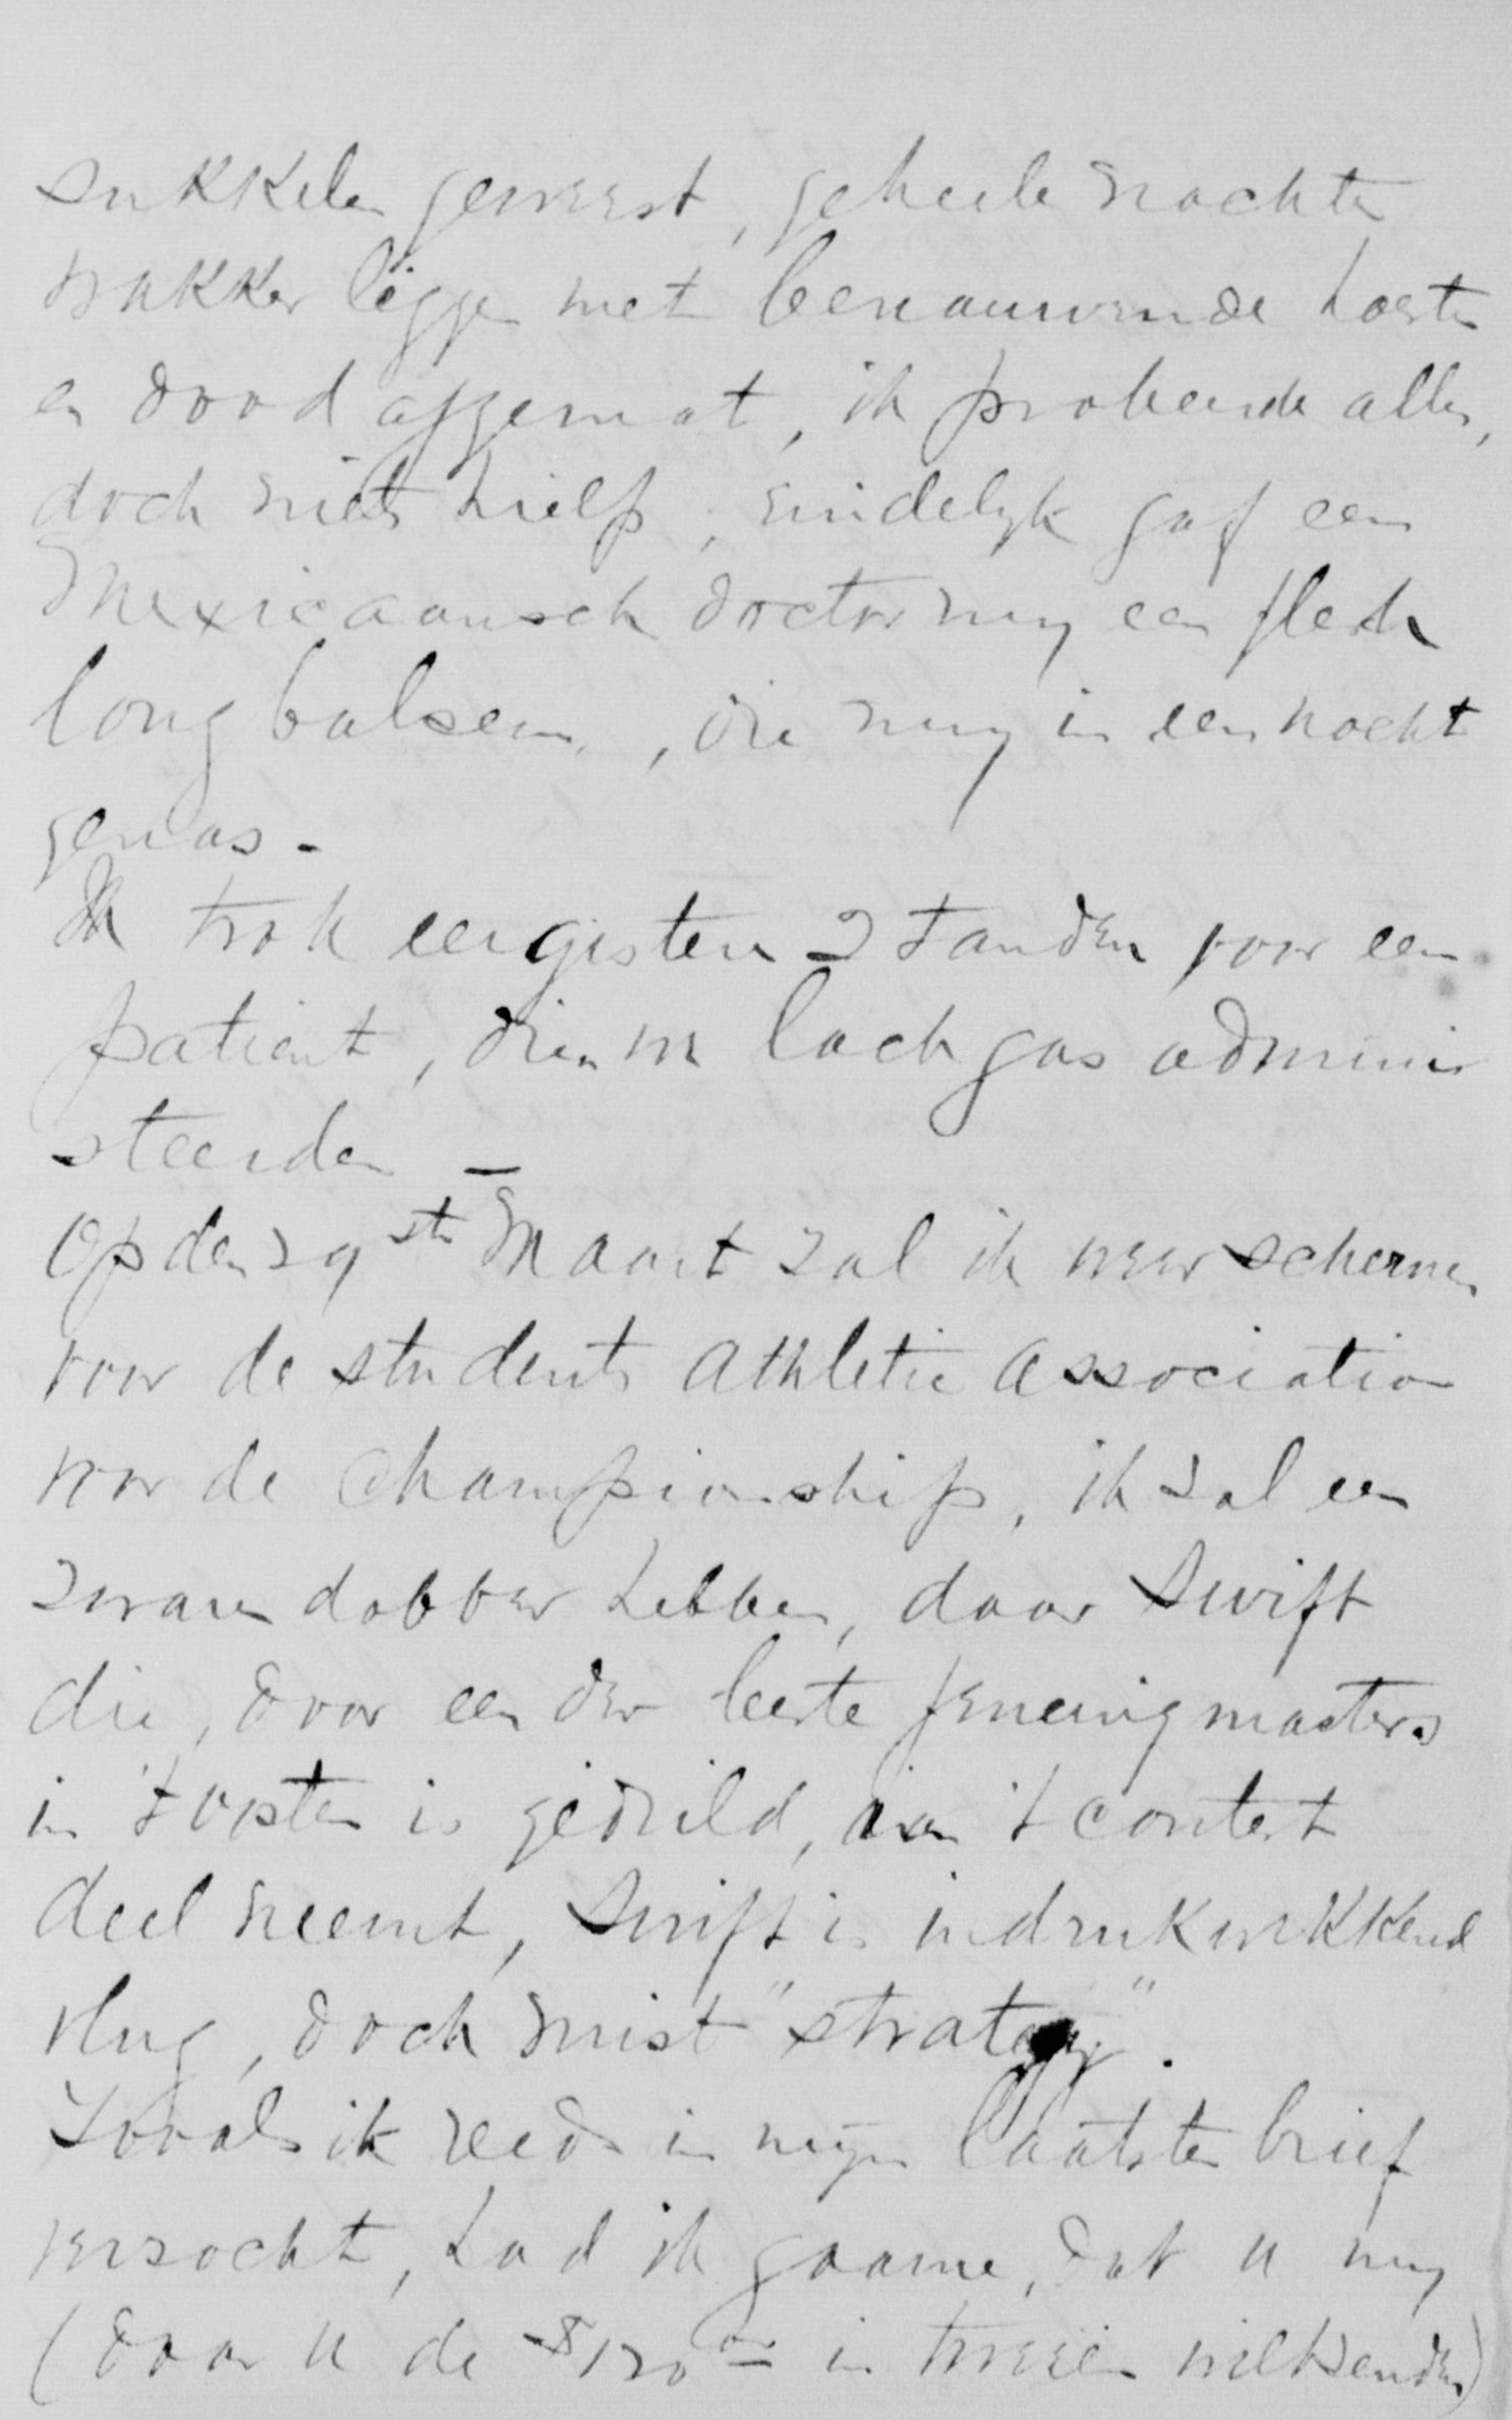 sukkelen geweest, geheele nachten
wakker liggen met benauwende hoesten
en dood afgemat, ik probeerde alles,
doch niets hielp, eindelyk gaf een
Mexicaansch doctor my een flesch
long balsem, die my in een nacht
genas.
Ik trok eergisteren 2 tanden voor een
patient, dien we lachgas adminis
steerden —
Op den 29sten Maart zal ik weer schermen
voor de students athletic association
voor de Championship, ik zal een
zwaren dobber hebben, daar Swift
die, door een der beste fencing masters
in 't oosten is gedrild, aan 't contest
deel neemt, Swift is indrukwekkend
vlug, doch mist "strategy".
Zooals ik reeds in myn laatsten brief
verzocht, had ik gaarne, dat u my
(daar u de $120 in tweeën wilt zenden)